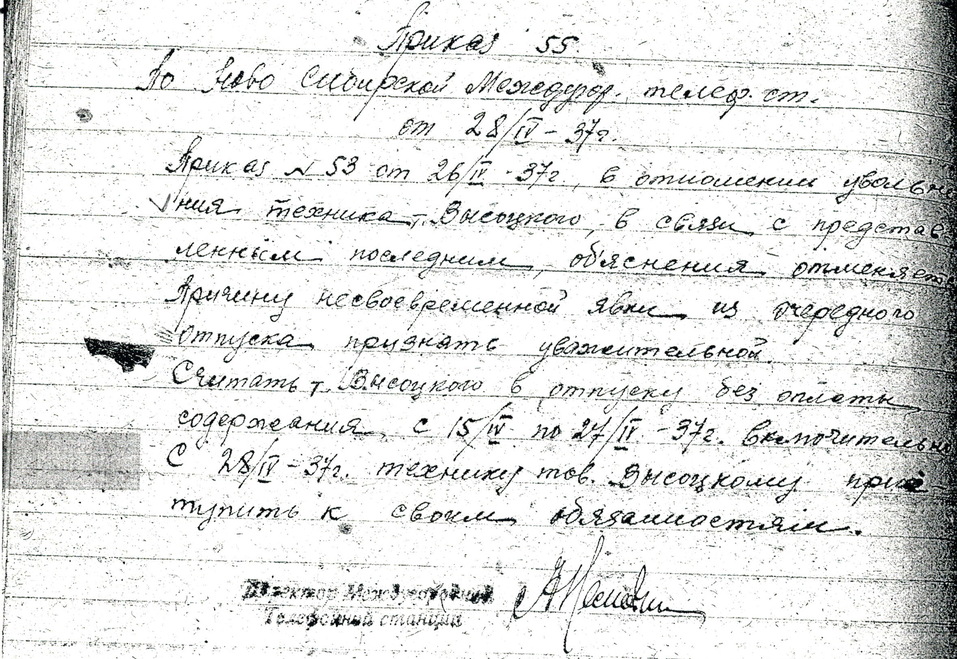 Приказ 55
По Ново Сибирской Междугор. телеф. ст.
от 28/IV – 37г.
Приказ N 53 от 26/IV - 37г, в отношении увольне
ния техника т. Высоцкого, в связи с представ
ленным последним, об'яснения отменяется
Причину несвоевременной явки из очередного
отпуска признать уважительной.
Считать т. Высоцкого в отпуску без оплаты
содержания с 15/IV по 27/IV - 37г. включительно
С 28/IV - 37г. технику тов. Высоцкому прис
тупить к своим обязанностям.
Директор Междугородной
Телефонной станции